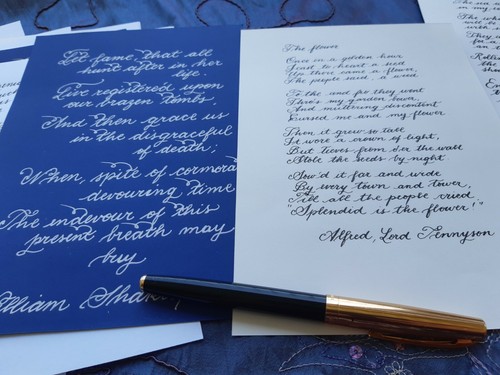 Let fame, that all
hunt after in her
life.
Live registered upon
our brazen tombs,
And then grace us
in the disgraceful
of death;
When, spite of cormora
devouring time
The endevour of this
present breath may
buy
William Shak
The flower
Once in a golden hour
I cast to heart a seed
Up there came a flower,
The people said, a weed.
To the and fro they went
Thro's my garden bower,
And muttering discontent
Cursed me and my flower
Then it grew so tall
It wore a crown of light,
But tieves from o'er the wall
Stole the seeds by night
Sow'd it far and wide
By every town and tower,
Till all the people cried
"Splendid is the flower!"
Alfred, Lord Tennyson